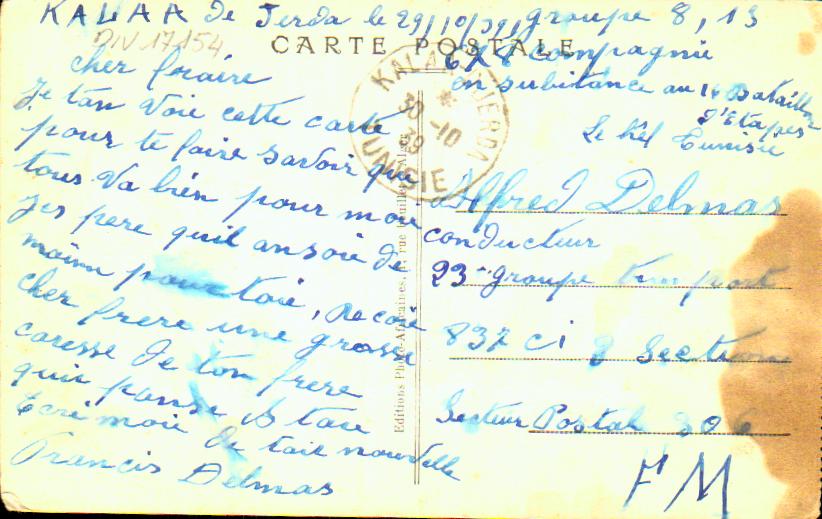 KALAA de Jerda le 29/10/39, groupe 8, 13
DIV 17154
CARTE POSTALE
compagnie
en subsitance au 14 Bataillon
d'Etapes
Le Kéf Tunisie
KALAA DJERDA
30 -10
39
TUNISIE
cher fraire
Je tan voie cette carte
pour te faire savoir que
tous va bien pour moi
Jes pere quil ansoie de
maim pour toie, recoie
cher frere une grosse
caresse de ton frere
qui panse a taie
Ecri moie de tait nouvelle
Francis Delmas
Editions Photo-Africaines, rue Alger
Alfred Delmas
conducteur
23e groupe transport
837 Ci 3 Section
Secteur Postal 306
F M